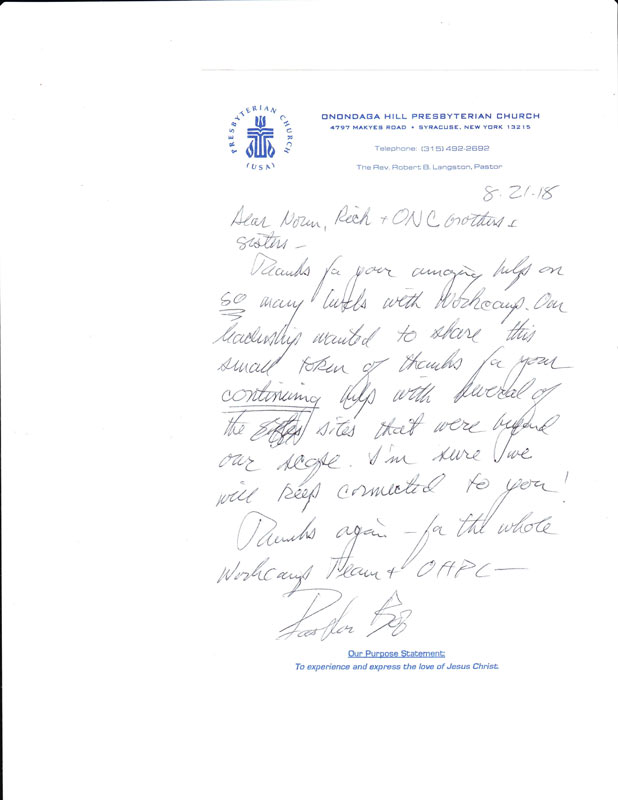 PRESBYTERIAN CHURCH
(USA)
ONONDAGA HILL PRESBYTERIAN CHURCH
4797 MAKYES ROAD • SYRACUSE, NEW YORK 13215
Telephone: (315) 492-2692
The Rev. Robert B. Langston, Pastor
8-21-18
Dear Norm, Rich + ONC brothers &
sisters –
Thanks for your amazing help on
so many levels with Workcamp. Our
leadership wanted to share this
small token of thanks for your
continuing help with several of
the sites that were beyond
our scope. I'm sure we
will keep connected to you!
Thanks again – for the whole
Workcamp Team + OHPC –
Pastor Bob
Our Purpose Statement:
To experience and express the love of Jesus Christ.